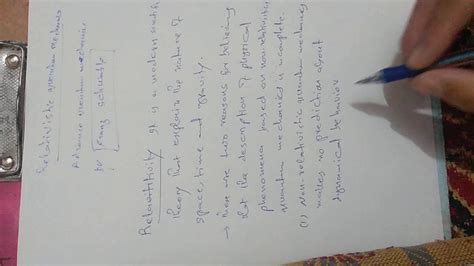 Relativistic quantum mechanics
Advance quantum mechanics
by Franz schwable
Relavititivity It is a modern scientific
theory that explain the nature of
space, time and gravity.
→ there are two reasons for believing
that the description of physical
phenomena based on non relativistic
quantum mechanics is incomplete.
(1) Non-relativistic quantum mechanics
makes no prediction about
dynamical behavior